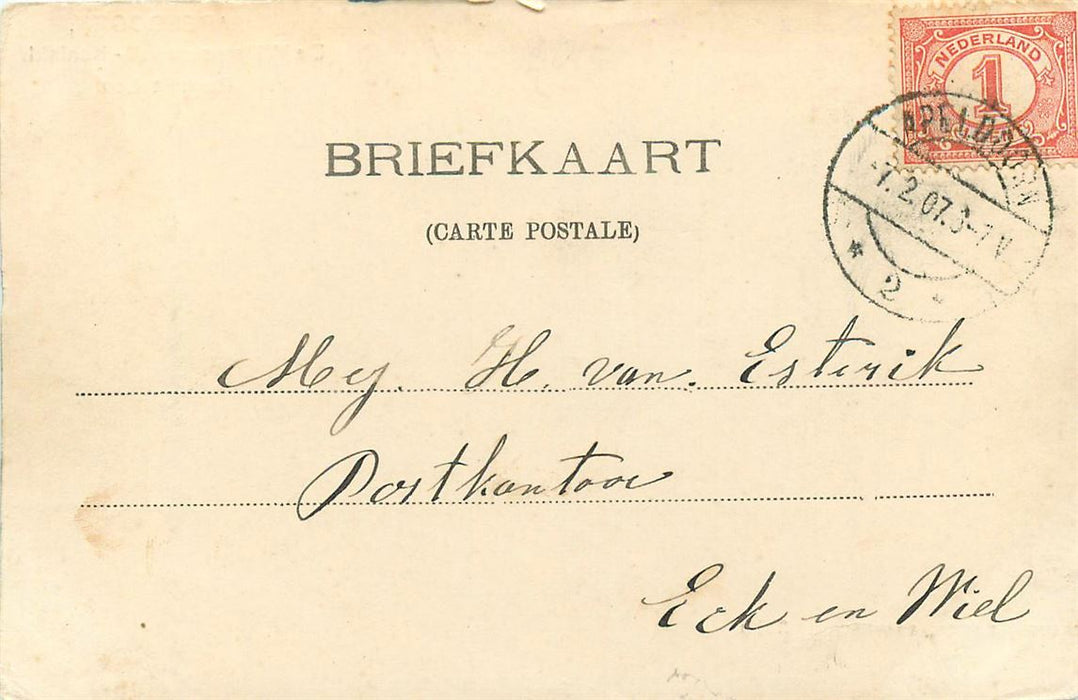 NEDERLAND
1
APELDOORN
-7.2.07.3-7V
2
BRIEFKAART
(CARTE POSTALE)
Mej. H. van. Esterik
Postkantoor
Eck en Wiel